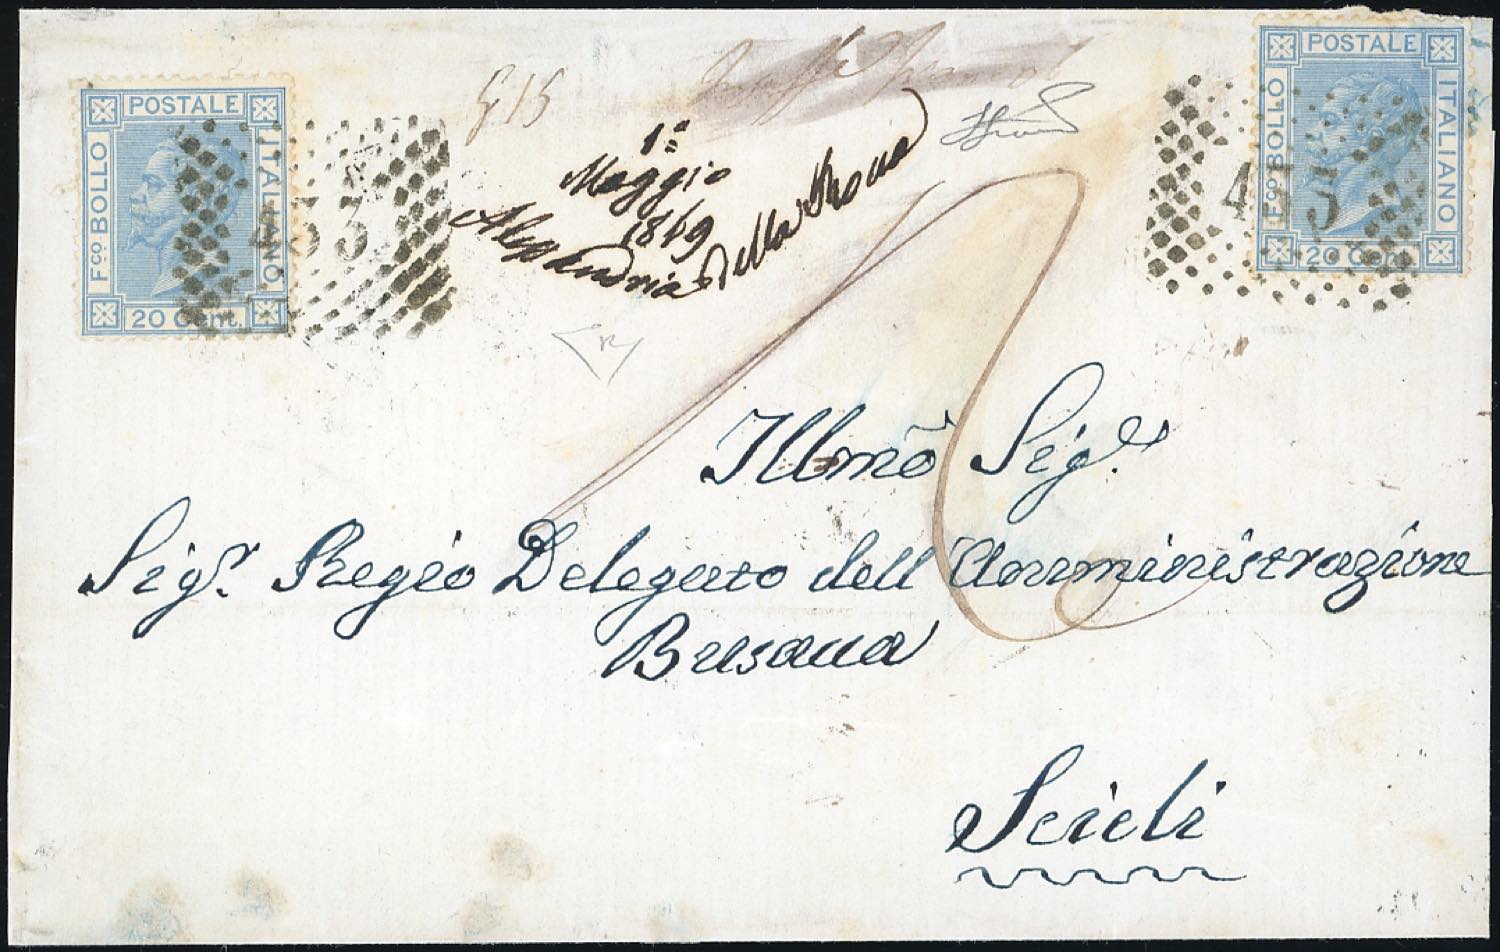 POSTALE
Fco BOLLO
ITALIANO
20 Cent.
453
G 15
1º
Maggio
1869
Alessandria della Rocca
POSTALE
Fco BOLLO
ITALIANO
20 Cent.
453
Illmo Sigr
Sigr. Regio Delegato dell'Amministrazione
Busacca
Scicli